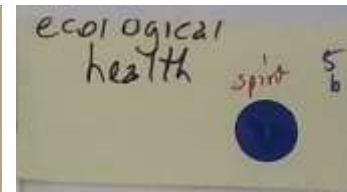 ecological
health
spirit
5
6